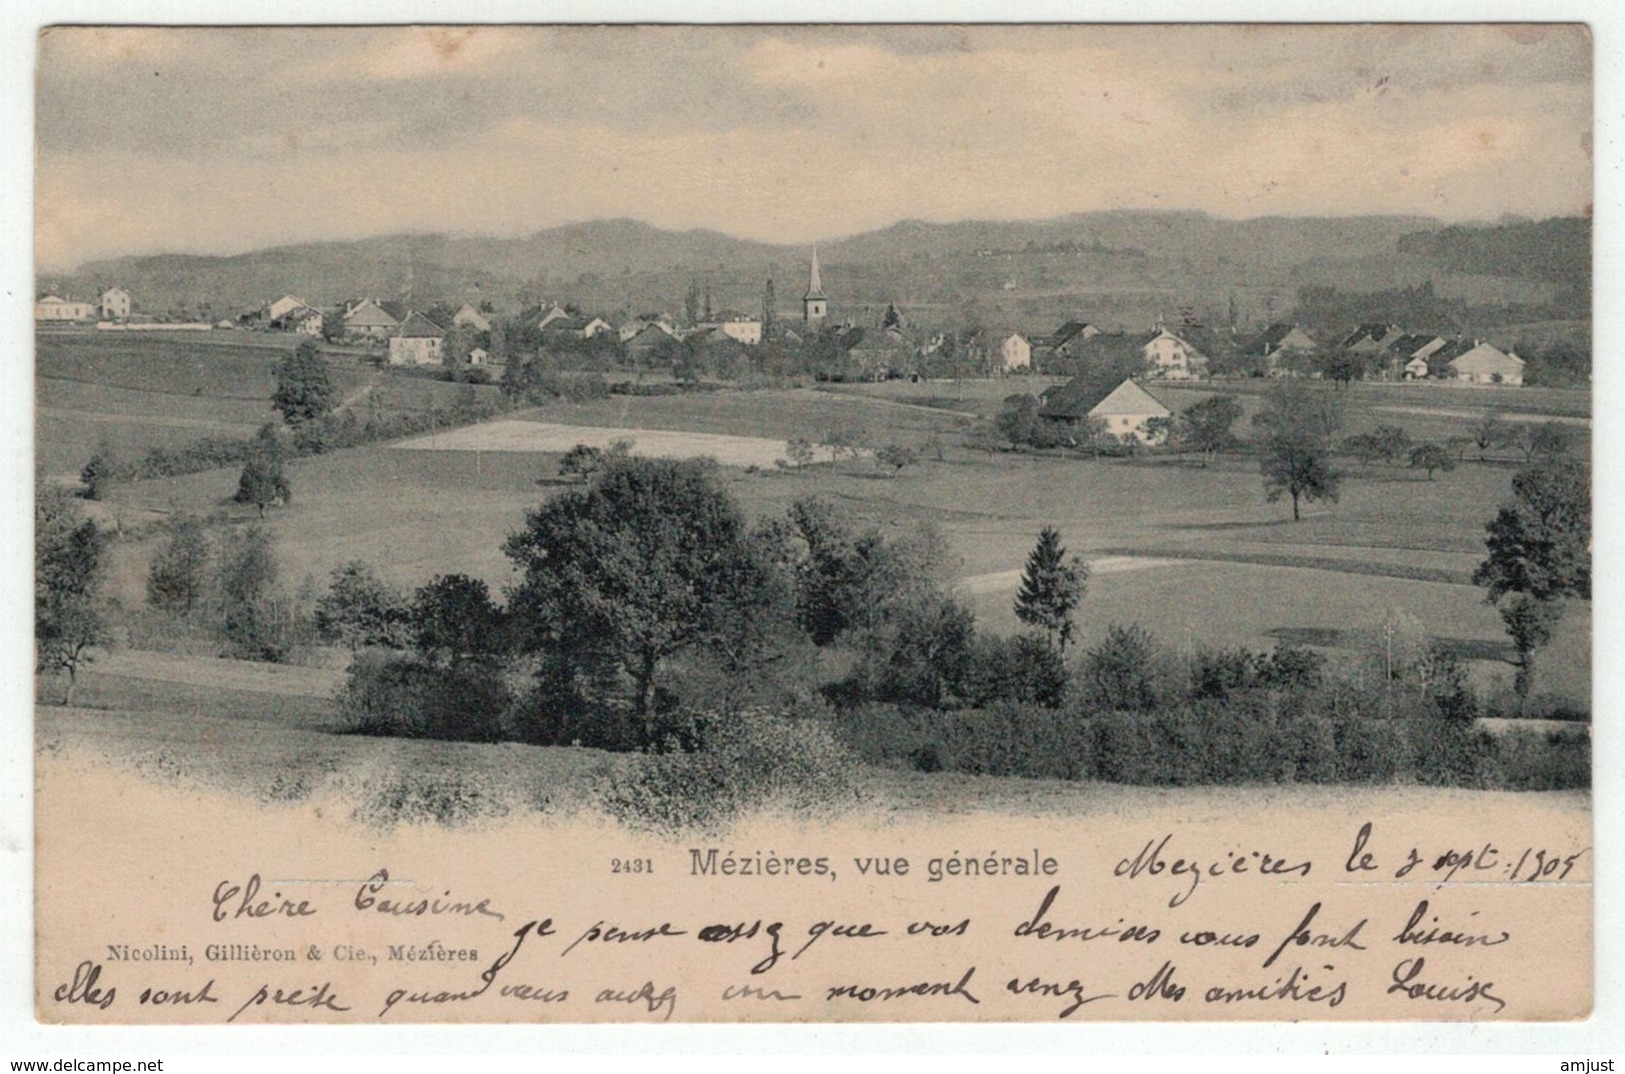 2431 Mézières, vue générale
Mezières le 3 sept. 1905
Chère Cousine
je pense assez que vos demises vous font bisoin
Nicolini, Gillièron & Cie., Mézières
elles sont prêite quand vous aurez un moment venez Mes amitiés Louise
www.delcampe.net
amjust